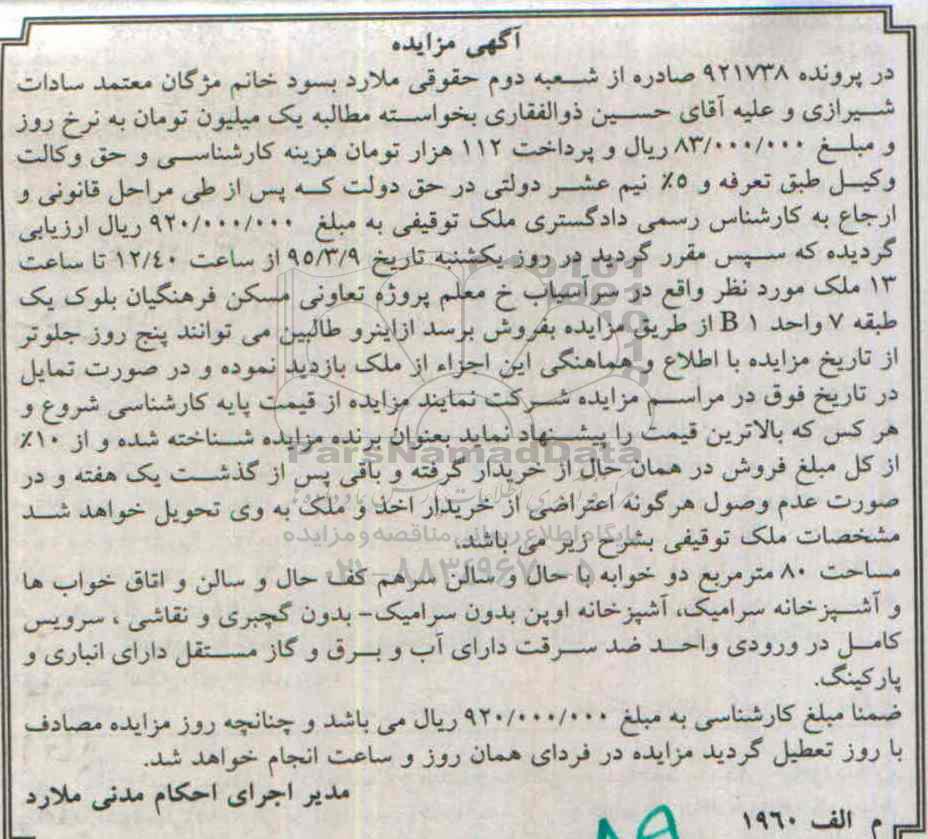 آگهی مزایده
در پرونده ۹۲۱۷۳۸ صادره از شعبه دوم حقوقی ملارد بسود خانم مژگان معتمد سادات
شیرازی و علیه آقای حسین ذوالفقاری بخواسته مطالبه یک میلیون تومان به نرخ روز
و مبلغ ۸۳/۰۰۰/۰۰۰ ریال و پرداخت ۱۱۲ هزار تومان هزینه کارشناسی و حق وکالت
وکیل طبق تعرفه و ۵٪ نیم عشر دولتی در حق دولت که پس از طی مراحل قانونی و
ارجاع به کارشناس رسمی دادگستری ملک توقیفی به مبلغ ۹۲۰/۰۰۰/۰۰۰ ریال ارزیابی
گردیده که سپس مقرر گردید در روز یکشنبه تاریخ ۹۵/۳/۹ از ساعت ۱۲/۴۰ تا ساعت
۱۳ ملک مورد نظر واقع در سرآسیاب خ معلم پروژه تعاونی مسکن فرهنگیان بلوک یک
طبقه ۷ واحد ۱ B از طریق مزایده بفروش برسد ازاینرو طالبین می توانند پنج روز جلوتر
از تاریخ مزایده با اطلاع و هماهنگی این اجزاء از ملک بازدید نموده و در صورت تمایل
در تاریخ فوق در مراسم مزایده شرکت نمایند مزایده از قیمت پایه کارشناسی شروع و
هر کس که بالاترین قیمت را پیشنهاد نماید بعنوان برنده مزایده شناخته شده و از ۱۰٪
از کل مبلغ فروش در همان حال از خریدار گرفته و باقی پس از گذشت یک هفته و در
صورت عدم وصول هرگونه اعتراضی از خریدار اخذ و ملک به وی تحویل خواهد شد
مشخصات ملک توقیفی بشرح زیر می باشد.
مساحت ۸۰ مترمربع دو خوابه با حال و سالن سرهم کف حال و سالن و اتاق خواب ها
و آشپزخانه سرامیک، آشپزخانه اوپن بدون سرامیک- بدون گچبری و نقاشی ، سرویس
کامل در ورودی واحد ضد سرقت دارای آب و برق و گاز مستقل دارای انباری و
پارکینگ.
ضمنا مبلغ کارشناسی به مبلغ ۹۲۰/۰۰۰/۰۰۰ ریال می باشد و چنانچه روز مزایده مصادف
با روز تعطیل گردید مزایده در فردای همان روز و ساعت انجام خواهد شد.
مدیر اجرای احکام مدنی ملارد
م الف ۱۹۶۰
ParsNamadData
پایگاه اطلاع رسانی مناقصه و مزایده
۰۲۱-۸۸۳۴۹۶۷۰-۵